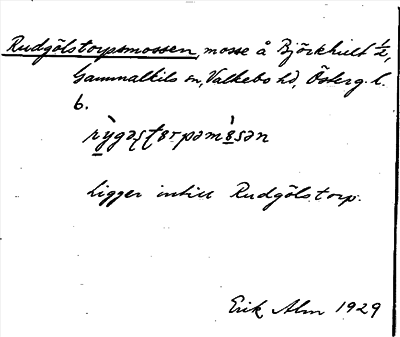 Rudgölstorpsmossen, mosse å Björkhult ½,
Gammalkils sn, Valkebo hd, Österg. l.
6.
Ligger intill Rudgölstorp.
Erik Alm 1929